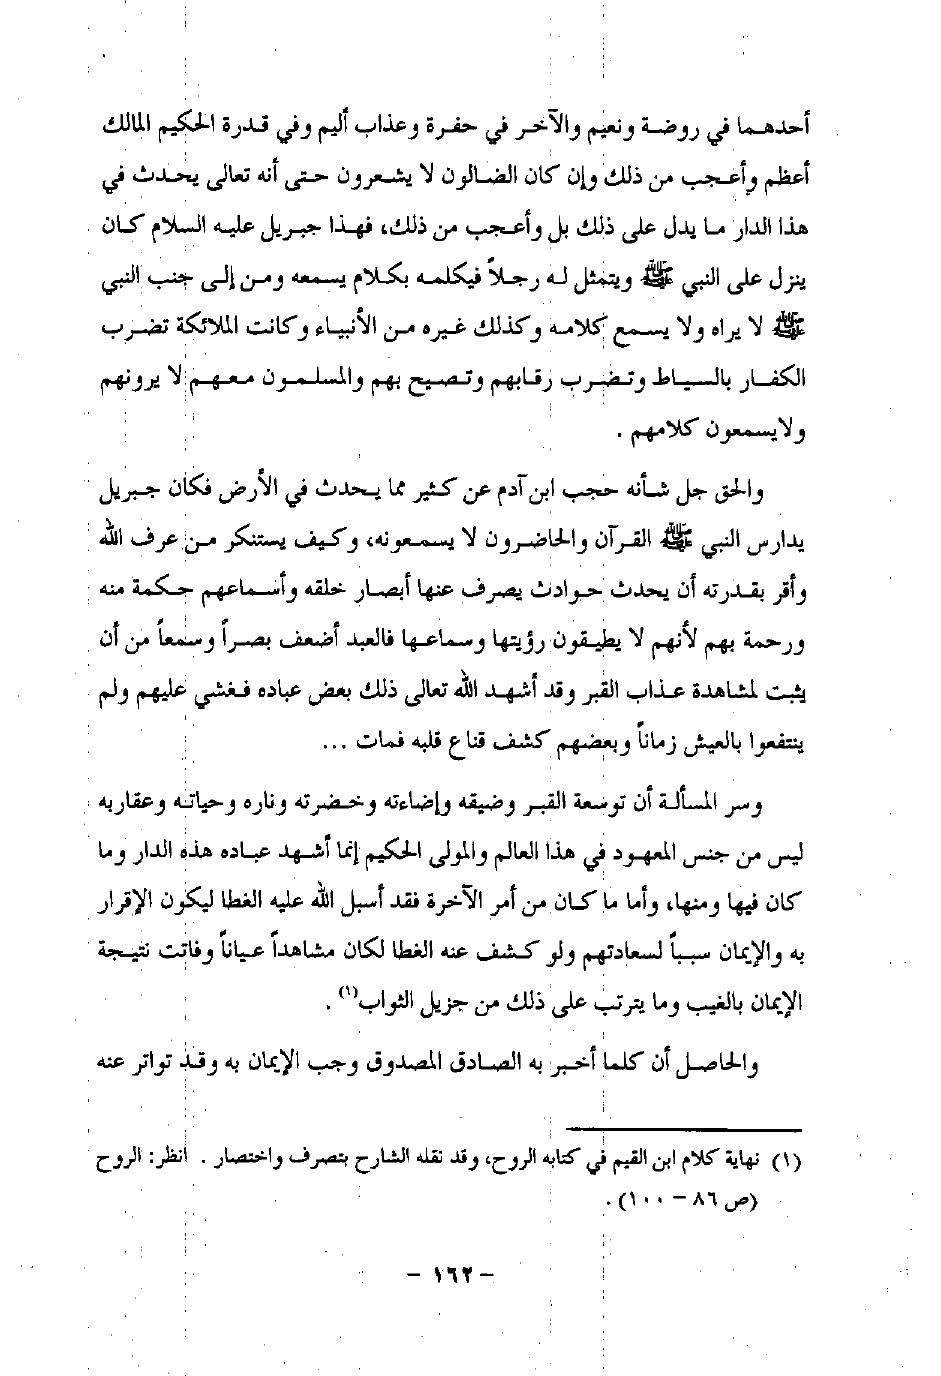 أحدهما في روضة ونعيم والآخر في حفرة وعذاب أليم وفي قدرة الحكيم المالك
أعظم وأعجب من ذلك وإن كان الضالون لا يشعرون حتى أنه تعالى يحدث في
هذا الدار ما يدل على ذلك بل وأعجب من ذلك، فهذا جبريل عليه السلام كان
ينزل على النبي ﷺ ويتمثل له رجلاً فيكلمه بكلام يسمعه ومن إلى جنب النبي
ﷺ لا يراه ولا يسمع كلامه وكذلك غيره من الأنبياء وكانت الملائكة تضرب
الكفار بالسياط وتضرب رقابهم وتصيح بهم والمسلمون معهم لا يرونهم
ولايسمعون كلامهم .
والحق جل شأنه حجب ابن آدم عن كثير مما يحدث في الأرض فكان جبريل
يدارس النبي ﷺ القرآن والحاضرون لا يسمعونه، وكيف يستنكر من عرف الله
وأقر بقدرته أن يحدث حوادث يصرف عنها أبصار خلقه وأسماعهم حكمة منه
ورحمة بهم لأنهم لا يطيقون رؤيتها وسماعها فالعبد أضعف بصراً وسمعاً من أن
يثبت لمشاهدة عذاب القبر وقد أشهد الله تعالى ذلك بعض عباده فغشي عليهم ولم
ينتفعوا بالعيش زماناً وبعضهم كشف قناع قلبه فمات ...
وسر المسألة أن توسعة القبر وضيقه وإضاءته وخضرته وناره وحياته وعقاربه
ليس من جنس المعهود في هذا العالم والمولى الحكيم إنما أشهد عباده هذه الدار وما
كان فيها ومنها، وأما ما كان من أمر الآخرة فقد أسبل الله عليه الغطا ليكون الإقرار
به والإيمان سبباً لسعادتهم ولو كشف عنه الغطا لكان مشاهداً عياناً وفاتت نتيجة
الإيمان بالغيب وما يترتب على ذلك من جزيل الثواب(١) .
والحاصل أن كلما أخبر به الصادق المصدوق وجب الإيمان به وقد تواتر عنه
(١) نهاية كلام ابن القيم في كتابه الروح، وقد نقله الشارح بتصرف واختصار . انظر: الروح
(ص ٨٦ - ١٠٠) .
- ١٦٢ -